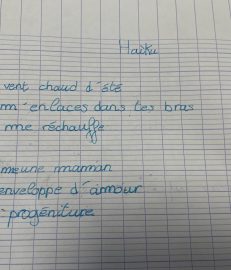 Haiku
vent chaud d'été
m'enlaces dans tes bras
me réchauffe
une maman
enveloppe d'amour
progéniture